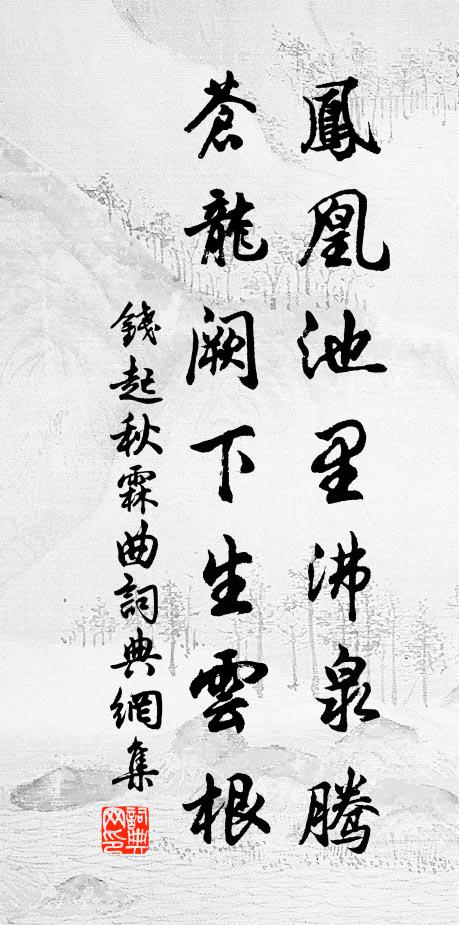 鳳凰池里沸泉騰
蒼龍闕下生雲根
錢起秋霖曲詞典網集
詞典网印